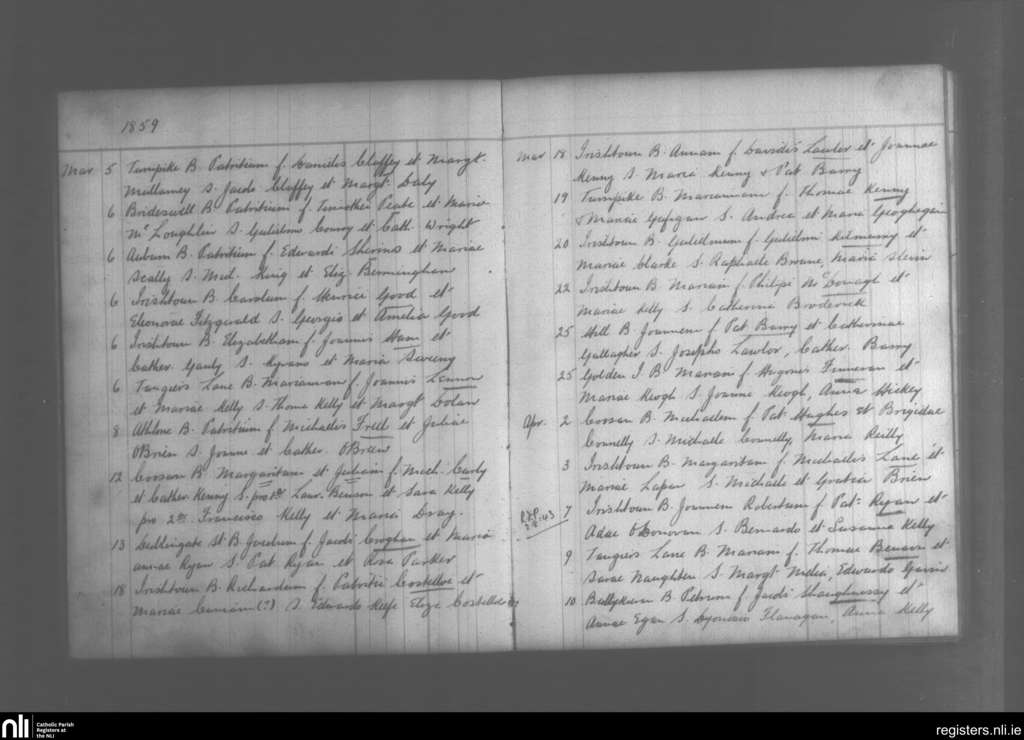 1859
Mar 5 Turnpike B. Patritium f. Danielis Claffey et Margt.
Mullamey S. Jacobi Claffey et Margt. Daly
6 Brideswell B Patritium f. Timothei Peate et Maria
McLoughlin S Gulielmo Conry et Cath. Wright
6 Auburn B Patritium f. Edwardi Shorno et Mariae
Scally S. Med. King et Eliz Bermingham
6 Irishtown B Carolum f. Good et
Eleonorae Fitzgerald S. Georgio et Amelia Good
6 Irishtown B. Elizabetham f. Joannis Ham et
Cather. Gauly S. Kyrano et Maria Sweeny
6 Tangiers Lane B. Mariannam f. Joannis Lennon
et Mariae Kelly S. Thoma Kelly et Margt Dolan
8 Athlone B. Patritium f Michaelis Frill et Juliae
O'Brien S. Joanne et Cather. O'Brien
12 Cornan B. Margaritam et Juliam f. Mich. Carty
et Cather. Kenny S. pro 1st Laur. Benson et Sara Kelly
pro 2da. Francisco Kelly et Maria Dray.
13 St B. f. Jacobi Croghan et Maria
annae Ryan S Pat Ryan et Rosa Parker
18 Irishtown B. Richardum f. Patritii Costelloe et
Mariae (?) S. Edwardo Keefe Eliza Costelloe
Mar 18 Irishtown B. Annam f. Davidis Lawler et Joannae
Kenny S. Maria Kenny & Pat Barry
19 Turnpike B. Mariannam f. Thomae Kenny
& Mariae Gafigan S. Andrea et Maria Geoghegan
20 Irishtown B. Gulielmum f. Gulielmi et
Mariae Clarke S. Raphaele Browne, Maria Slevin
22 Irishtown B. Mariam f. Philipi McDonagh et
Mariae Kelly S. Catherina Broderick
25 Hill B. Joannem f Pat Barry et Catherinae
Gallagher S. Josepho Lawlor, Cather. Barry
25 Golden I. B Mariam f. Hugonis Finneran et
Mariae Keogh S. Joanne Keogh, Anna Hickey
Apr. 2 Cornan B. Michaelem f Pat Hughes et Brigidae
Connelly S. Michaele Connelly, Maria Reilly
3 Irishtown B. Margaritam f. Michaelis Lane et
Mariae Lapan S. Michaele et Gratia Brien
7 Irishtown B. Joannem Robertum f Pat: Regan et
Adae O'Donovan S. Bernardo et Susanna Kelly
9 Tangiers Lane B. Mariam f. Thomae Benson et
Sarae Naughten S. Margt Melia, Edwardo
10 Ballykeeran B Petrum f. Jacobi Shaughnessy et
Annae Egan S. Dyonisio Flanagan, Anna Kelly
nli Catholic Parish
Registers at
the NLI
registers.nli.ie